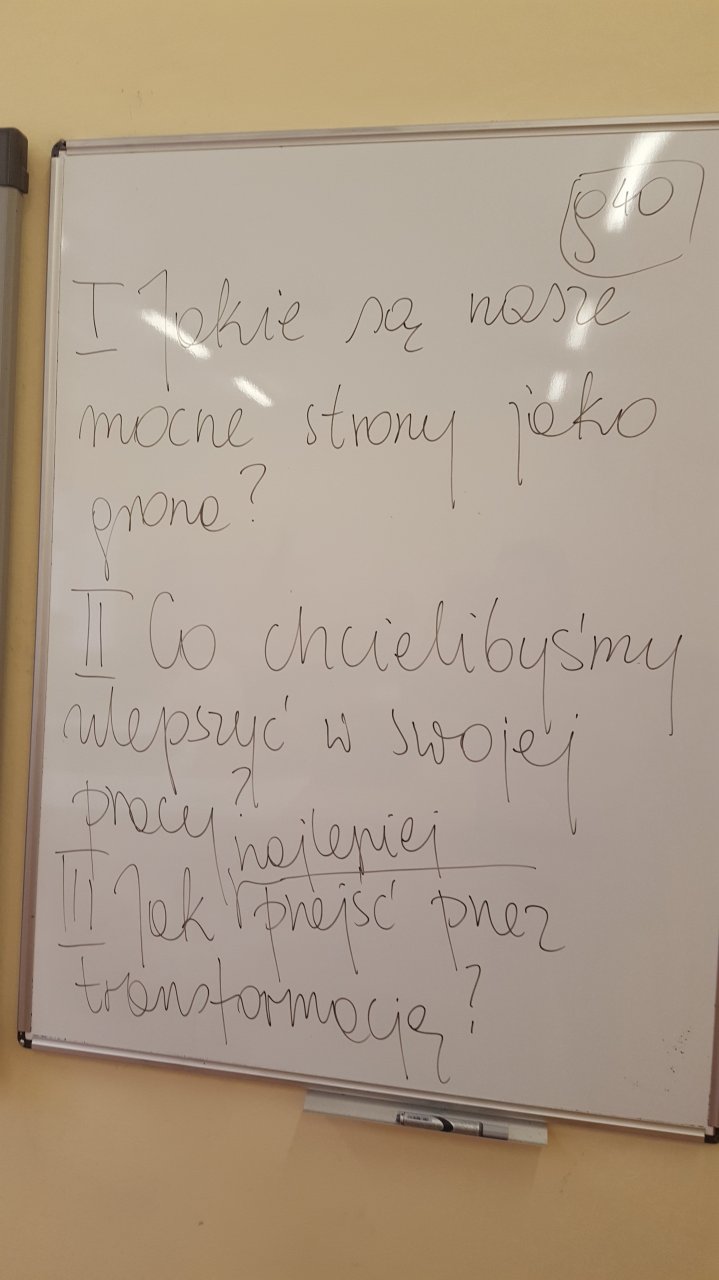 9 40
I Jakie są nasze
mocne strony jako
grono?
II Co chcielibyśmy
ulepszyć w swojej
pracy?
najlepiej
III Jak przejść przez
transformację?